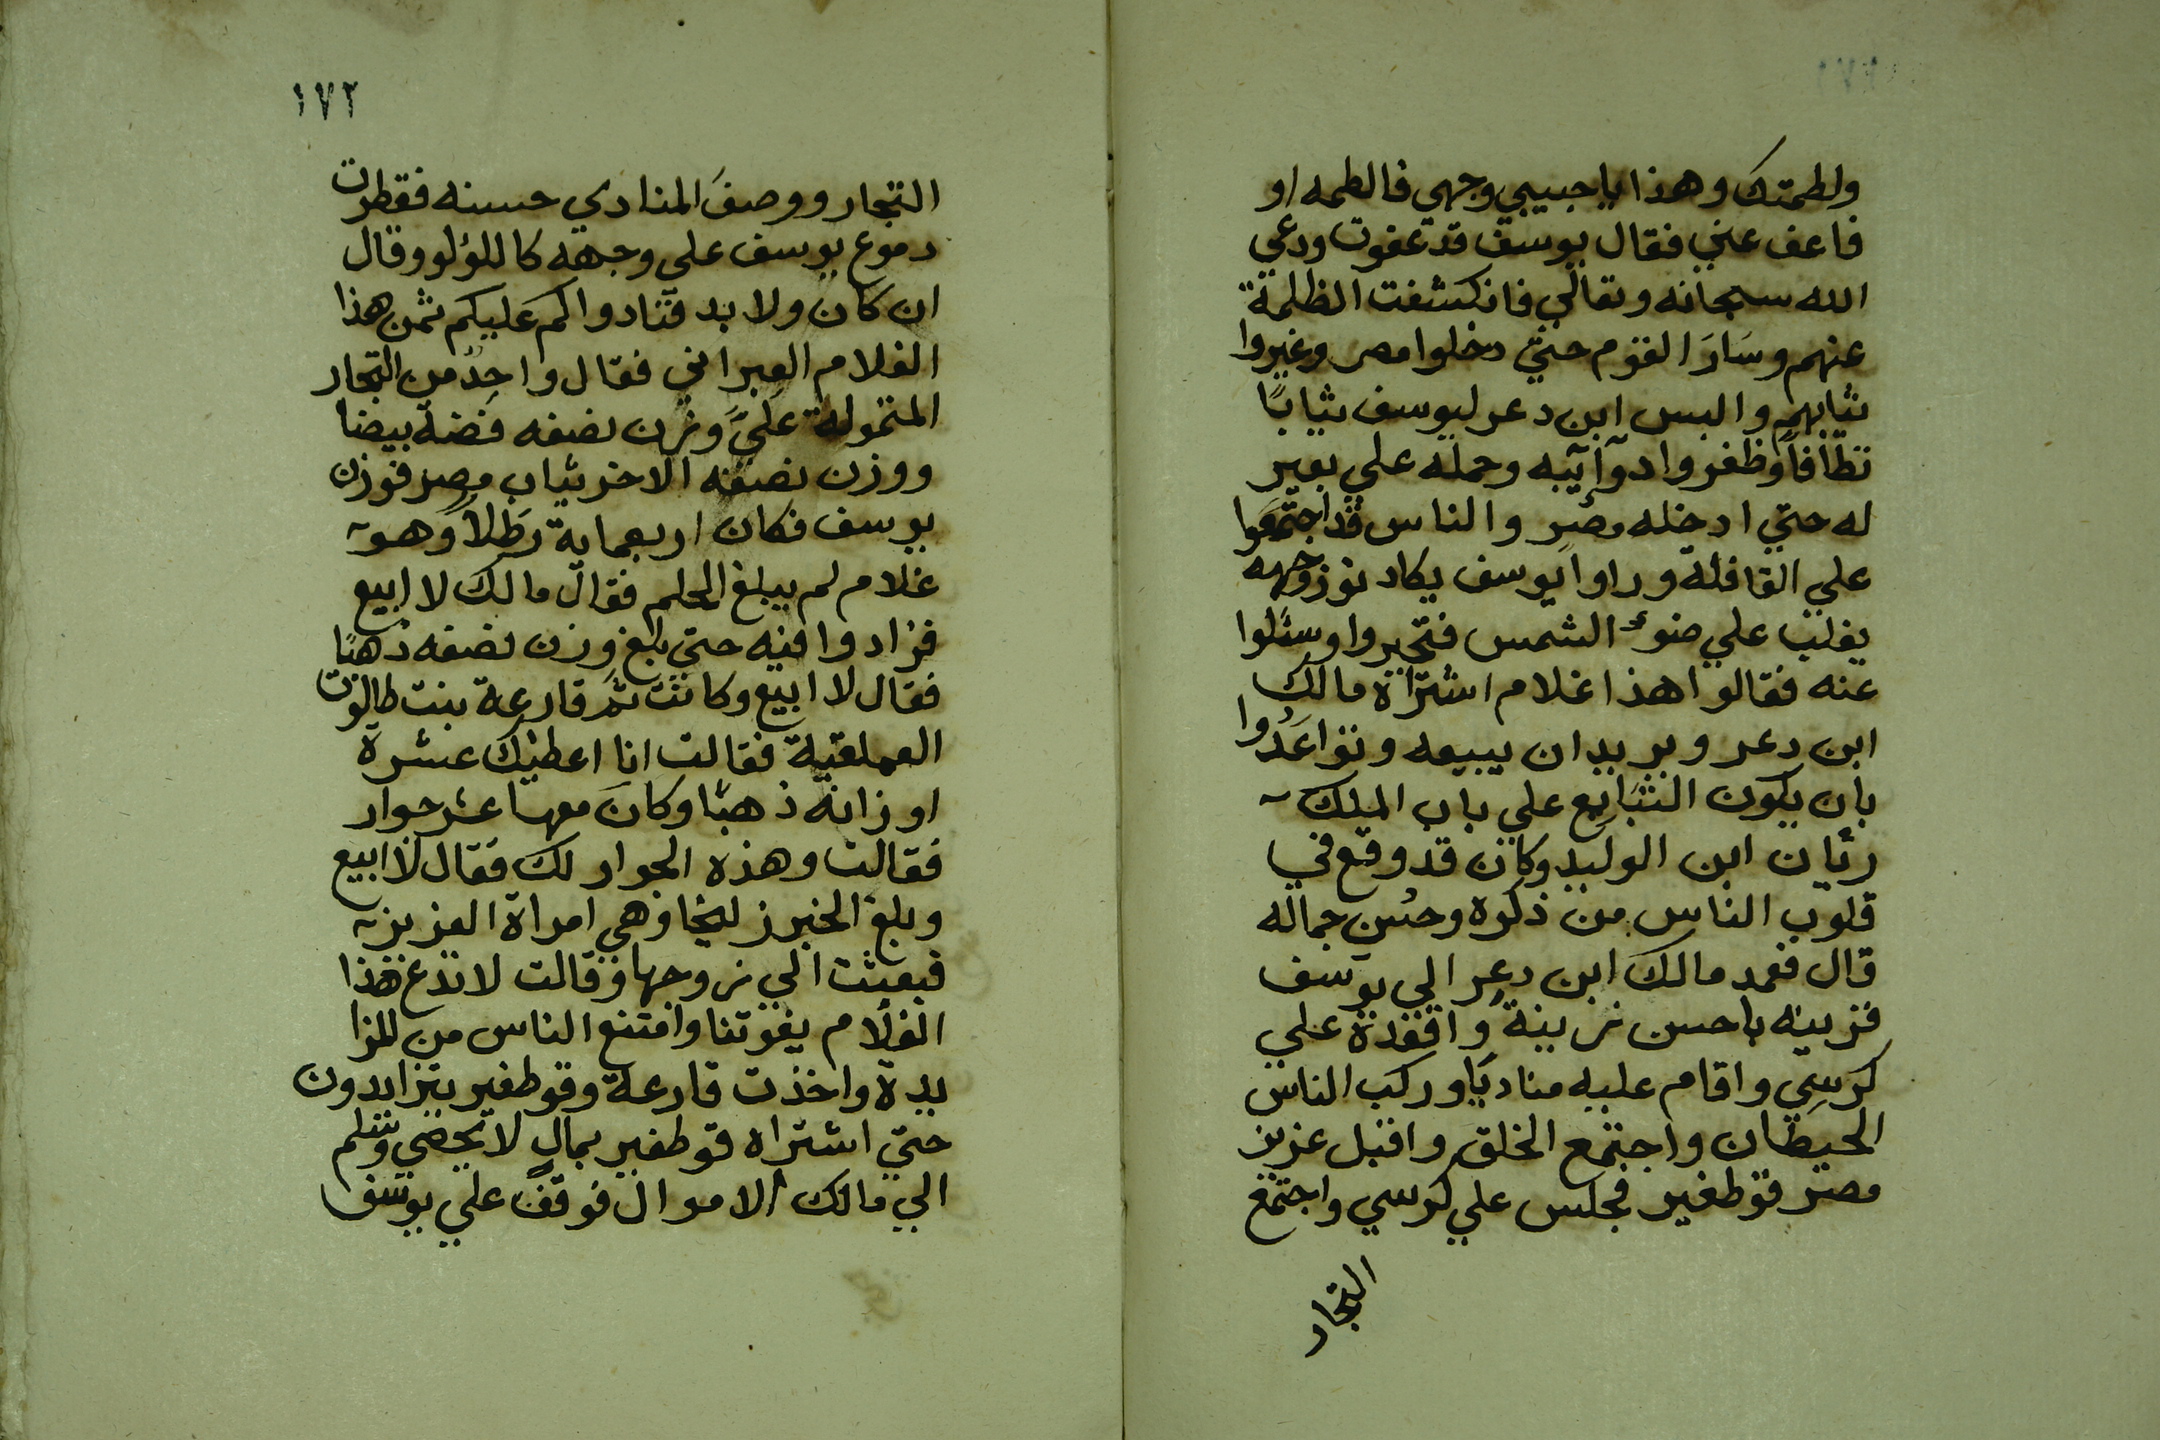 ولطمتك وهذا يا حبيبي وجهي فالطمه او
فاعف عني فقال يوسف قد عفوت ودعي
الله سبحانه وتعالي فانكشفت الظلمة
عنهم وسَارَ القوم حتي دخلوا مصر وغيروا
ثيابهم والبس ابن دعر ليوسف ثيابًا
نظافًا وظفروا دوآيبه وحمله علي بعير
له حتي ادخله مصر والناس قد اجتمعوا
علي القافلة وراوا يوسف يكاد نور وجهه
يغلب علي ضوء الشمس فتحيروا وسئلوا
عنه فقالوا هذا غلام اشتراه مالك
ابن دعر ويريد ان يبيعه وتواعَدُوا
بان يكون التبَايع علي باب الملك
ريان ابن الوليد وكان قد وقع في
قلوب الناس من ذكره وحسن جماله
قال فعمد مالك ابن دعر الي يوسف
فزينه باحسن زينة واقعده علي
كرسي واقام عليه مناديًا وركب الناس
الحيطان واجتمع الخلق واقبل عزيز
مصر قوطفير فجلس علي كرسي واجتمع
التجار
١٧٢
التجار ووصفَ المنادي حسنه فقطرت
دموع يوسف علي وجهه كاللؤلو وقال
ان كان ولا بد فنادوا كم عليكم ثمن هذا
الغلام العبراني فقال واحدٌ من التجار
المتمولة عليَّ وزن نصفه فضة بيضا
ووزن نصفه الاخر ثياب مصر فوزن
يوسف فكان اربعماية رطلاً وهو
غلام لم يبلغ الحلم فقال مالك لا ابيع
فزادوا فيه حتي بلغ وزن نصفه ذهبًا
فقال لا ابيع وكانت ثم قارعة بنت طالوت
العملقية فقالت انا اعطيك عشرة
اوزانه ذهبًا وكان معها عشر جوار
فقالت وهذه الجوار لك فقال لا ابيع
وبلغ الخبر زليخا وهي امراة العزيز
فبعثت الي زوجها وقالت لا تدع هذا
الغلام يفوتنا وامتنع الناس من المزا
يدة واخذت قارعة وقوطفير يتزايدون
حتي اشتراه قوطفير بمال لا يحصي وسلم
الي مالك الاموال فوقف علي يوسف